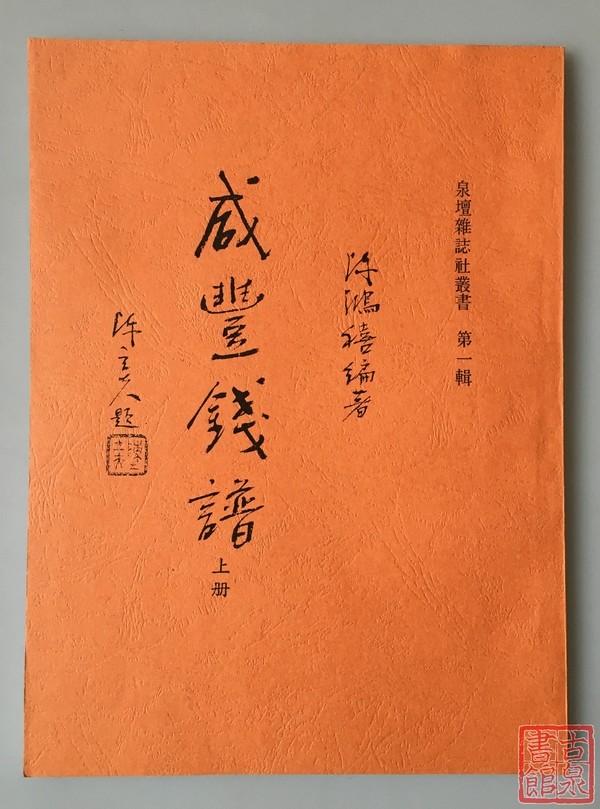 泉壇雜誌社叢書 第一輯
許鴻禧編著
咸豐錢譜
上册
題
古泉
書館